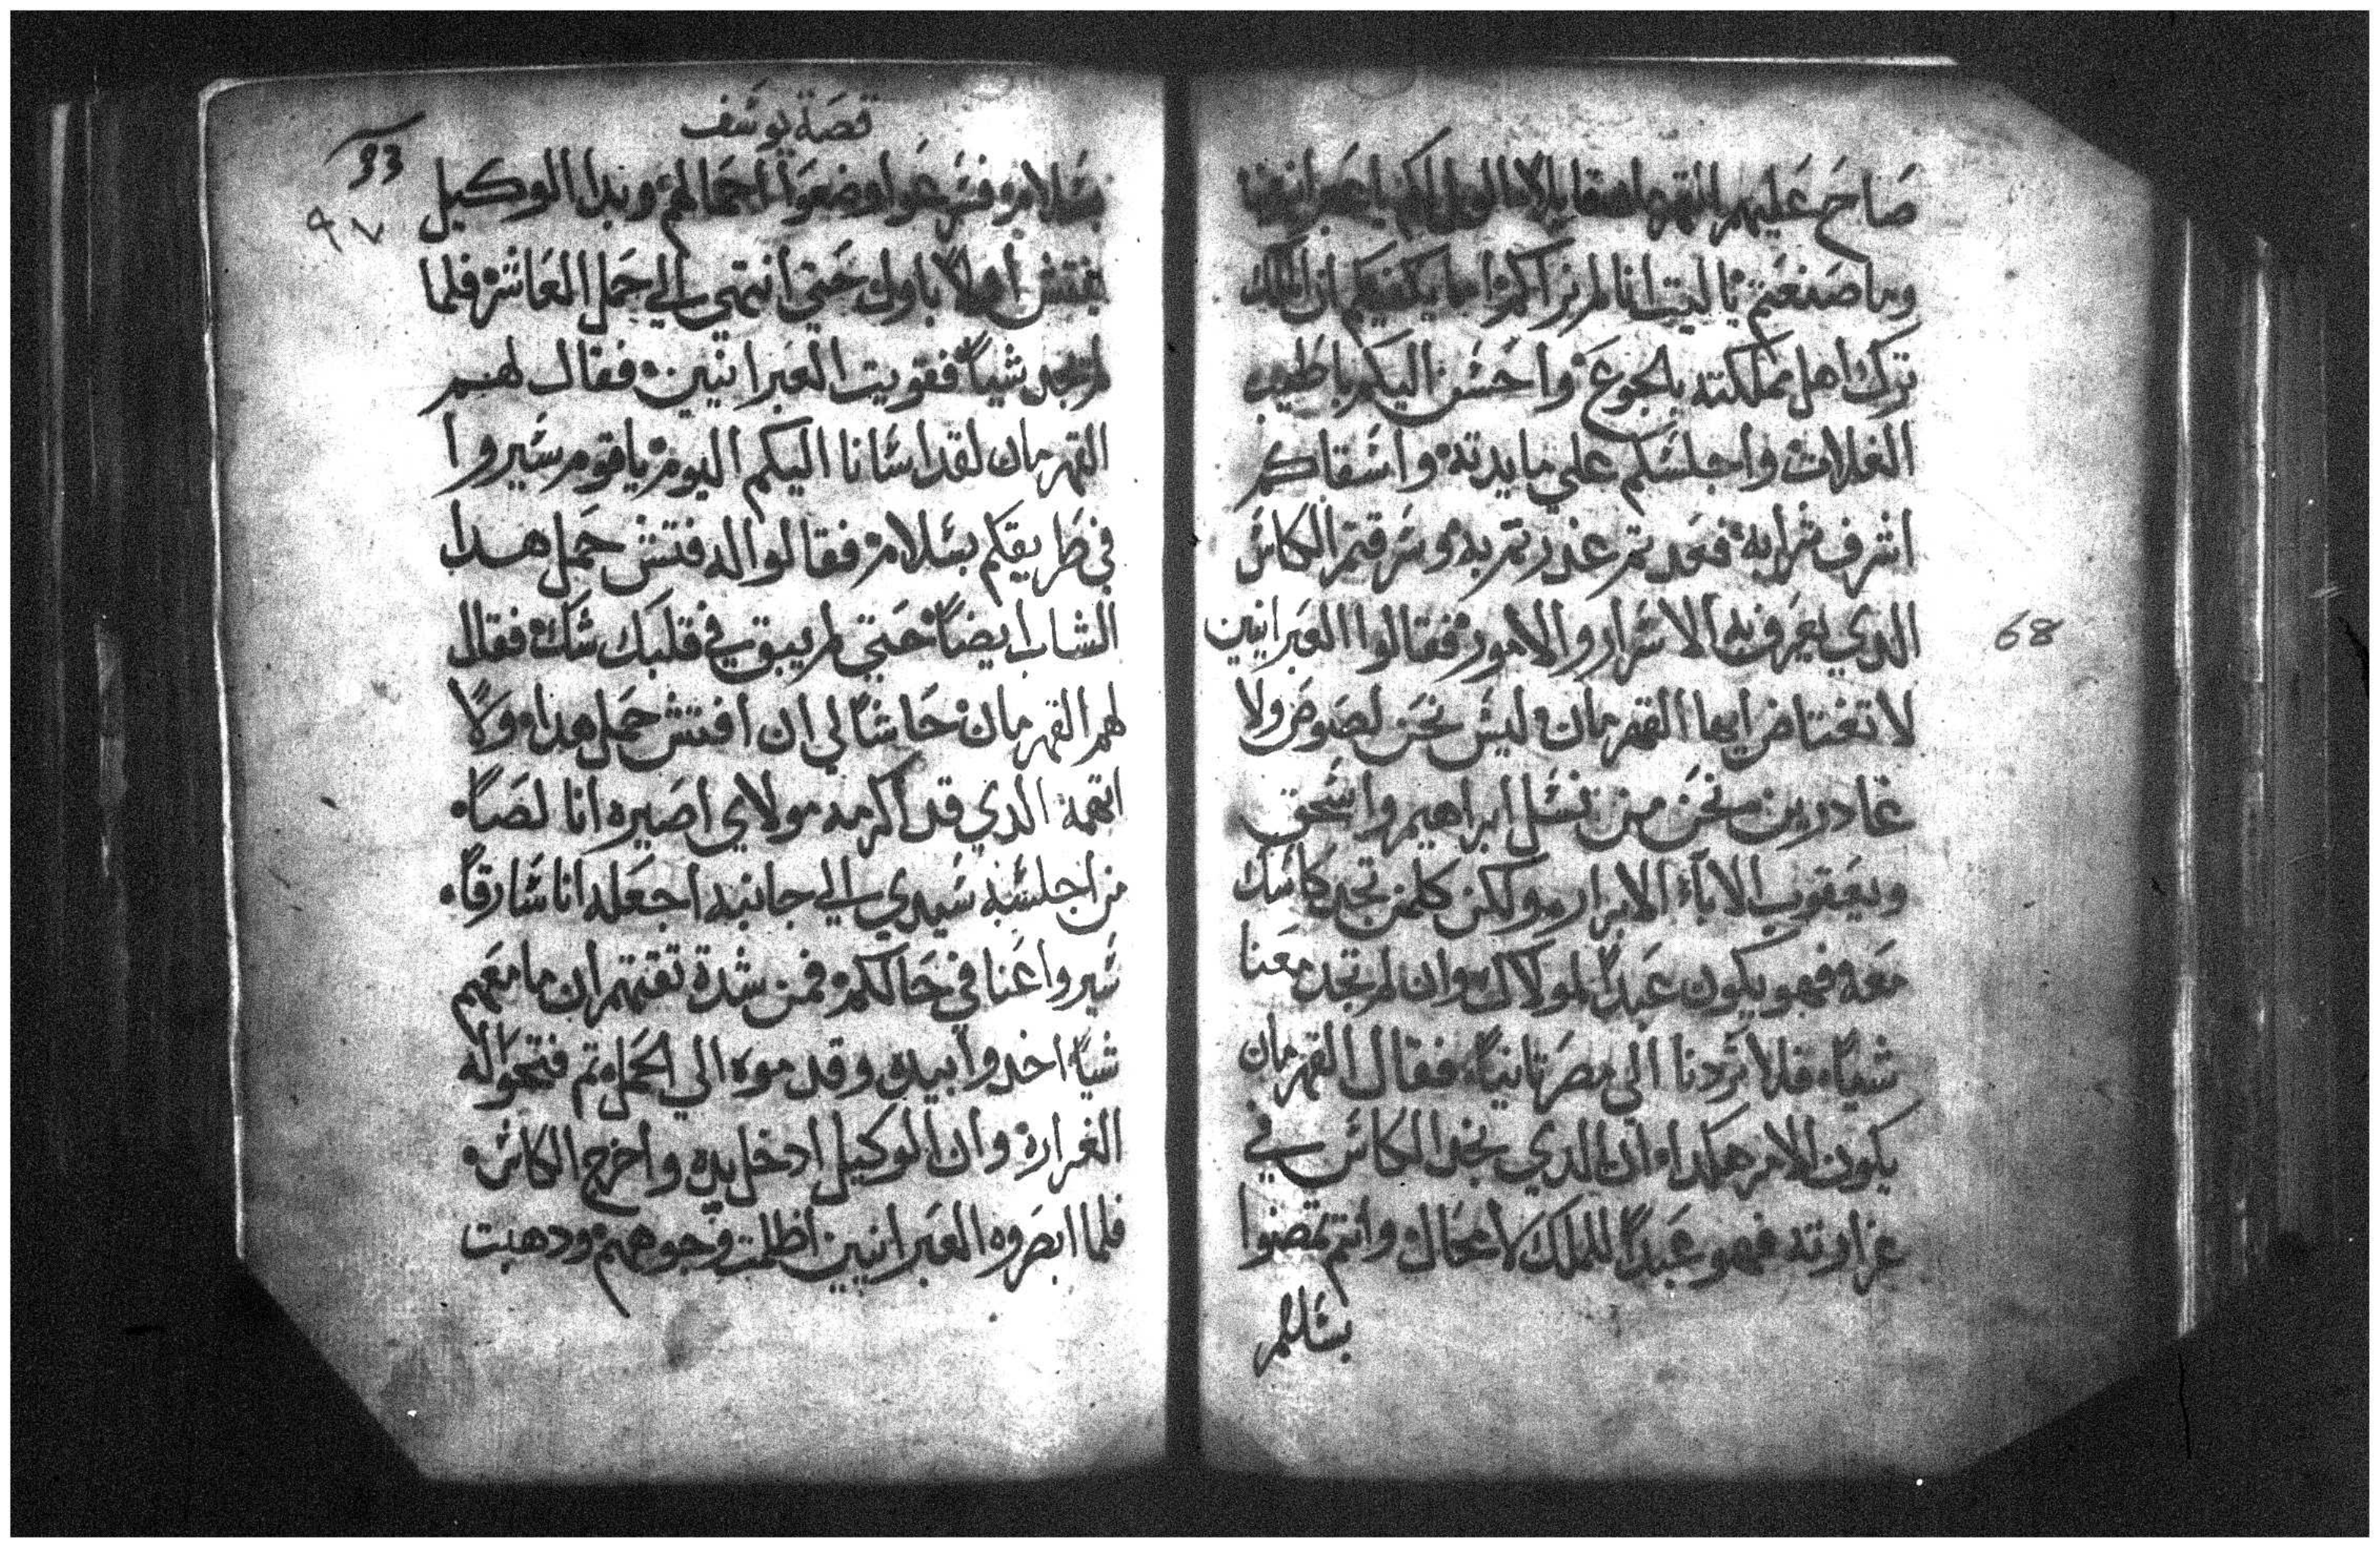 صاح عليهم القهرمان قايلا الويل لكم يا عبرانيين
وما صنعتم يا ليتنا لم نراكم اما يكفيكم ان الملك
ترك اهل مملكته بالجوع واحسن اليكم باطيب
الغلات واجلسكم علي مايدته واسقاكم
اشرف شرابه فغدتم غدرتم به وسرقتم الكاس
الدي يعرف به الاسرار والامور فقالوا العبرانيين
لا تغتاض ايها القهرمان ليس نحن لصوص ولا
غادرين نحن من نسل ابراهيم واسحق
ويعقوب الاباء الابرار ولكن كلمن تجد كاسك
معه فهو يكون عبدا لمولاك وان لم تجد معنا
شياء فلا تردنا الي مصر تانياء فقال القهرمان
يكون الامر هكدا ان الدي نجد الكاس في
غرارته فهو عبدا للملك لا محال وانتم تمضوا
بسلام
68
قصة يوسف
33
٩٧
بسلام فسرعوا وضعوا احمالهم وبدا الوكيل
يفتش اولا باول حتي انتهي الي حمل العاشر فلما
لم يجد شياء فقويت العبرانيين فقال لهم
القهرمان لقد اسانا اليكم اليوم يا قوم سيروا
في طريقكم بسلام فقالوا له فتش حمل هدا
الشاب ايضا حتي لم يبق في قلبك شك فقال
لهم القهرمان حاشا لي ان افتش حمل هدا ولا
اتهمه الدي قد اكرمه مولاي اصيره انا لصا
من اجلسه سيدي الي جانبه اجعله انا سارقا
سيروا عنا في حالكم فمن شدة تقتهم ان ما معهم
شيا اخدوا بيده وقدموه الي الحمل تم فتحوا له
الغرارة وان الوكيل ادخل يده واخرج الكاس
فلما ابصروه العبرانيين اظلمت وجوههم ودهبت